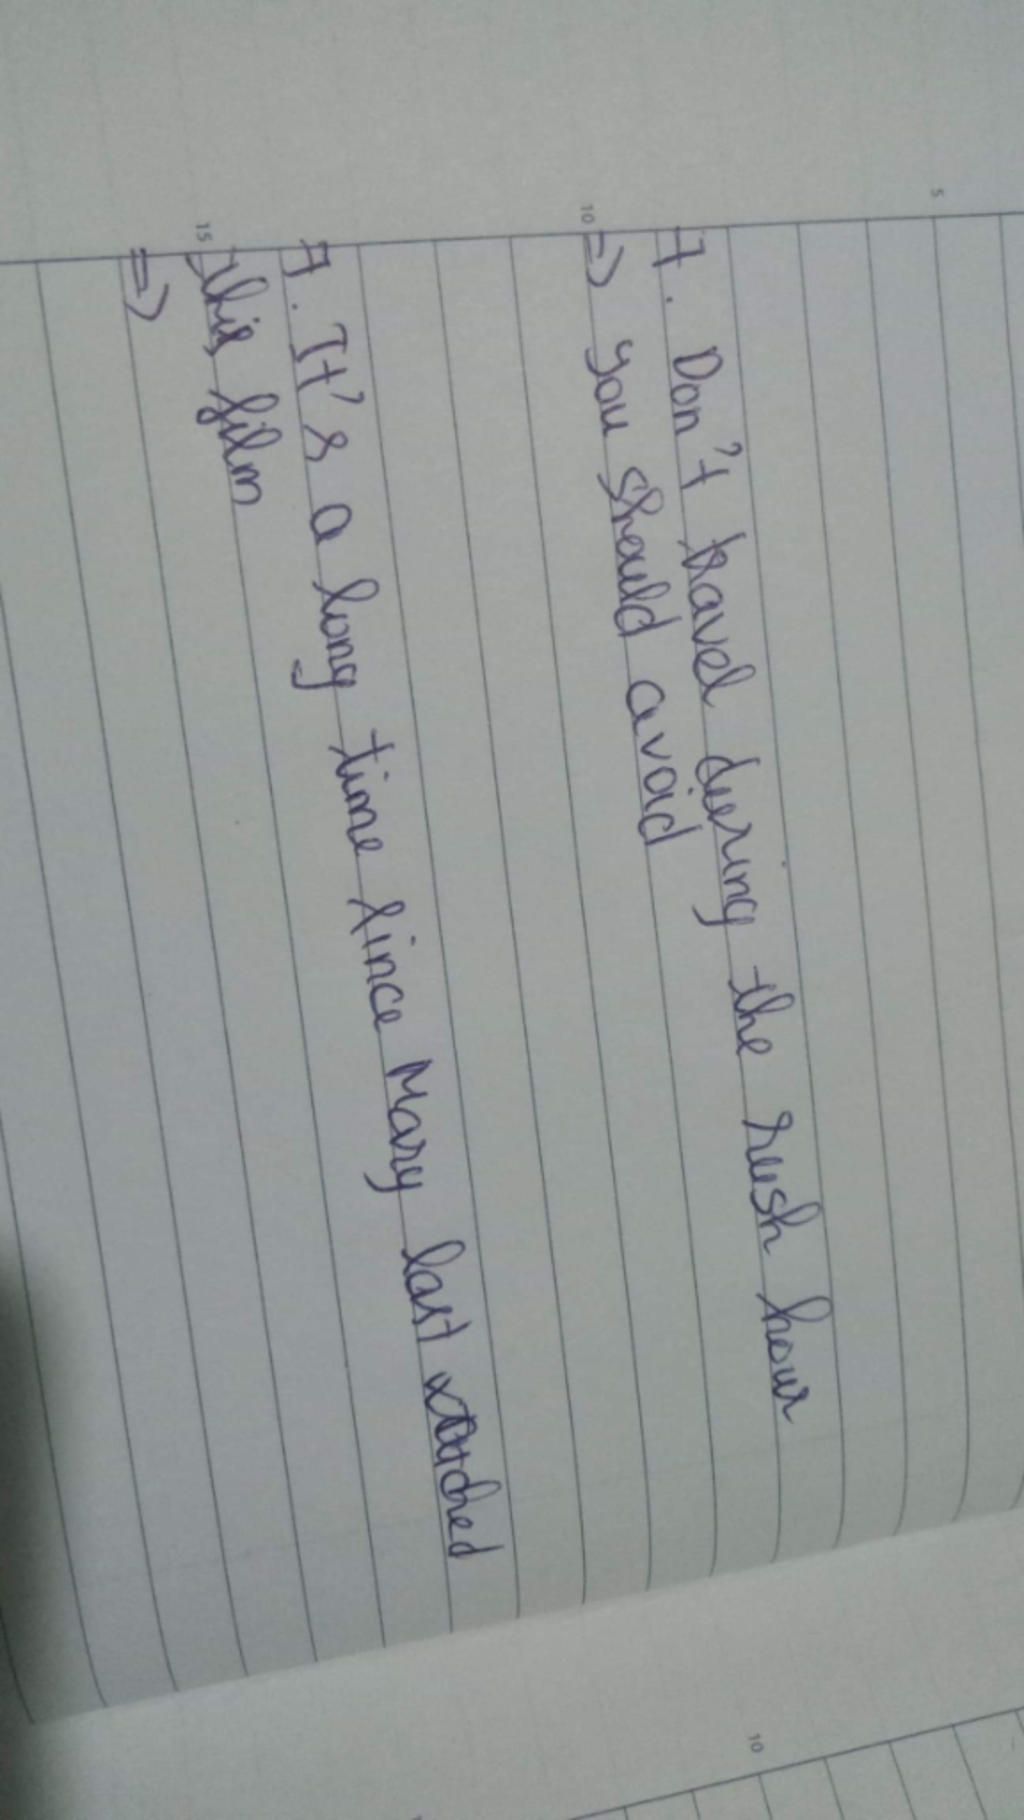 5
7. Don't travel during the rush hour
10 => you should avoid
7. It's a long time since Mary last watched
15 this film
=>
10